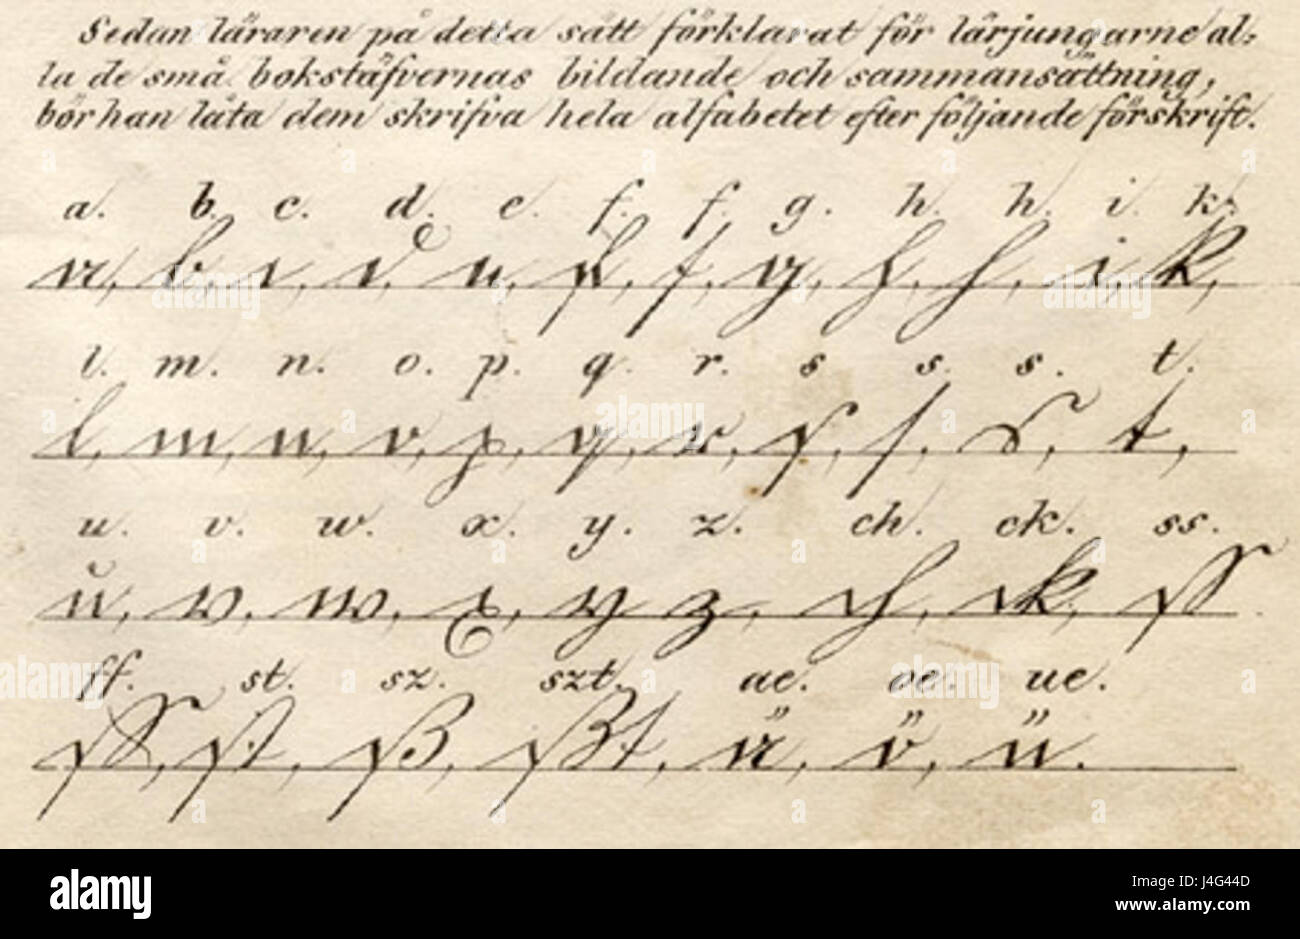 Sedan läraren på detta sätt förklarat för lärjungarne al=
la de små bokstäfvernas bildande och sammansättning,
bör han låta dem skrifva hela alfabetet efter följande förskrift.
a. b. c. d. e. f. f. g. h. h. i. k.
a, b, c, d, e, f, f, g, h, h, i, k,
l. m. n. o. p. q. r. s s. s. t.
l, m, n, o, p, q, r, s, ſ, s, t,
u. v. w. x. y. z. ch. ck. ss.
u, v, w, x, y, z, ch, ck, ſſ
ff. st. sz. szt. ae. oe. ue.
ff, ſt, ß, ßt, ä, ö, ü.
alamy
Image ID: J4G44D
www.alamy.com